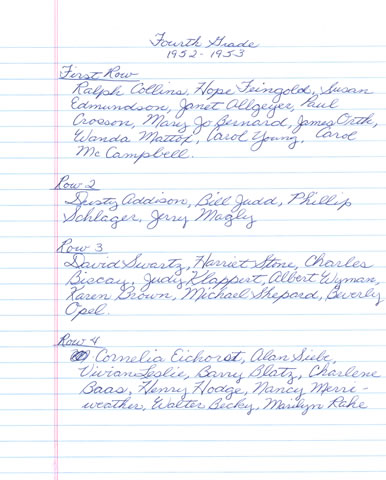 Fourth Grade
1952-1953
First Row
Ralph Collins, Hope Feingold, Susan
Edmundson, Janet Allgeyer, Paul
Crosson, Mary Jo Bernard, James Orth,
Wanda Mattox, Carol Young, Carol
McCampbell.
Row 2
Dusty Addison, Bill Judd, Phillip
Schlager, Jerry Magly
Row 3
David Swartz, Harriet Stone, Charles
Biscay, Judy Klappert, Albert Wyman,
Karen Brown, Michael Shepard, Beverly
Opel.
Row 4
Cornelia Eichorst, Alan Siebe,
Vivian Leslie, Barry Blatz, Charlene
Baas, Henry Hodge, Nancy Merri-
weather, Walter Becky, Marilyn Rahe